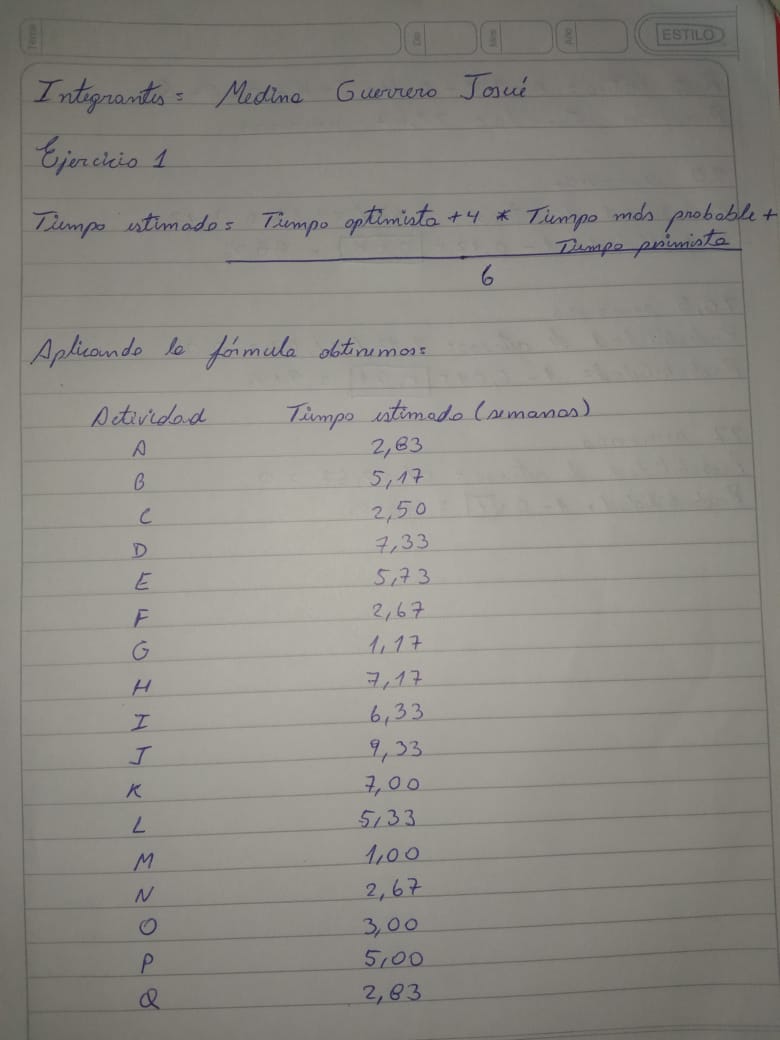 Tema
Día
Mes
Año
ESTILO
Integrantes = Medina Guerrero Josué
Ejercicio 1
Tiempo estimado = Tiempo optimista + 4 * Tiempo más probable +
Tiempo pesimista
6
Aplicando la fórmula obtenemos:
Actividad Tiempo estimado (semanas)
A 2,83
B 5,17
C 2,50
D 7,33
E 5,73
F 2,67
G 1,17
H 7,17
I 6,33
J 9,33
K 7,00
L 5,33
M 1,00
N 2,67
O 3,00
P 5,00
Q 2,83